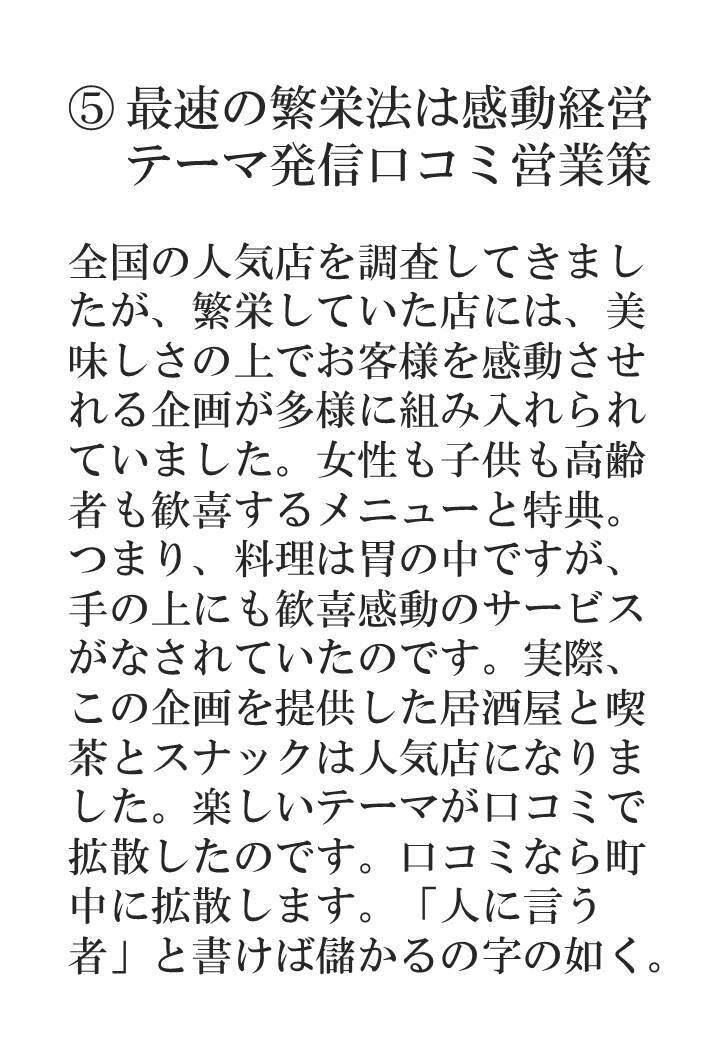 ⑤ 最速の繁栄法は感動経営
テーマ発信口コミ営業策
全国の人気店を調査してきまし
たが、繁栄していた店には、美
味しさの上でお客様を感動させ
れる企画が多様に組み入れられ
ていました。女性も子供も高齢
者も歓喜するメニューと特典。
つまり、料理は胃の中ですが、
手の上にも歓喜感動のサービス
がなされていたのです。実際、
この企画を提供した居酒屋と喫
茶とスナックは人気店になりま
した。楽しいテーマが口コミで
拡散したのです。口コミなら町
中に拡散します。「人に言う
者」と書けば儲かるの字の如く。